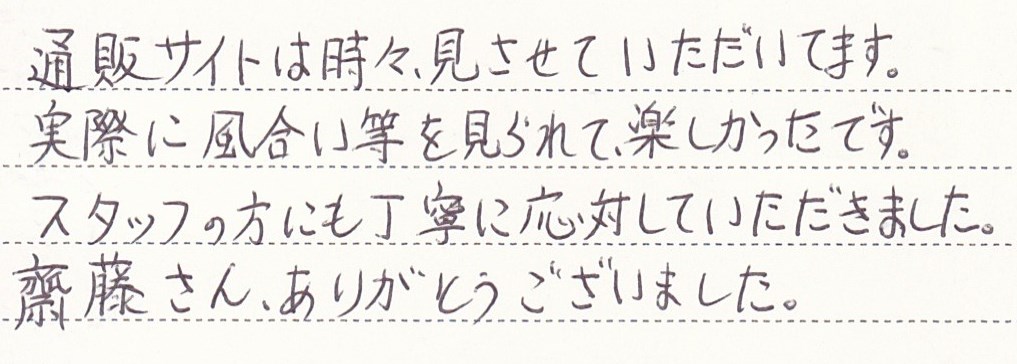 通販サイトは時々、見させていただいてます。
実際に風合い等を見られて、楽しかったです。
スタッフの方にも丁寧に応対していただきました。
齋藤さん、ありがとうございました。